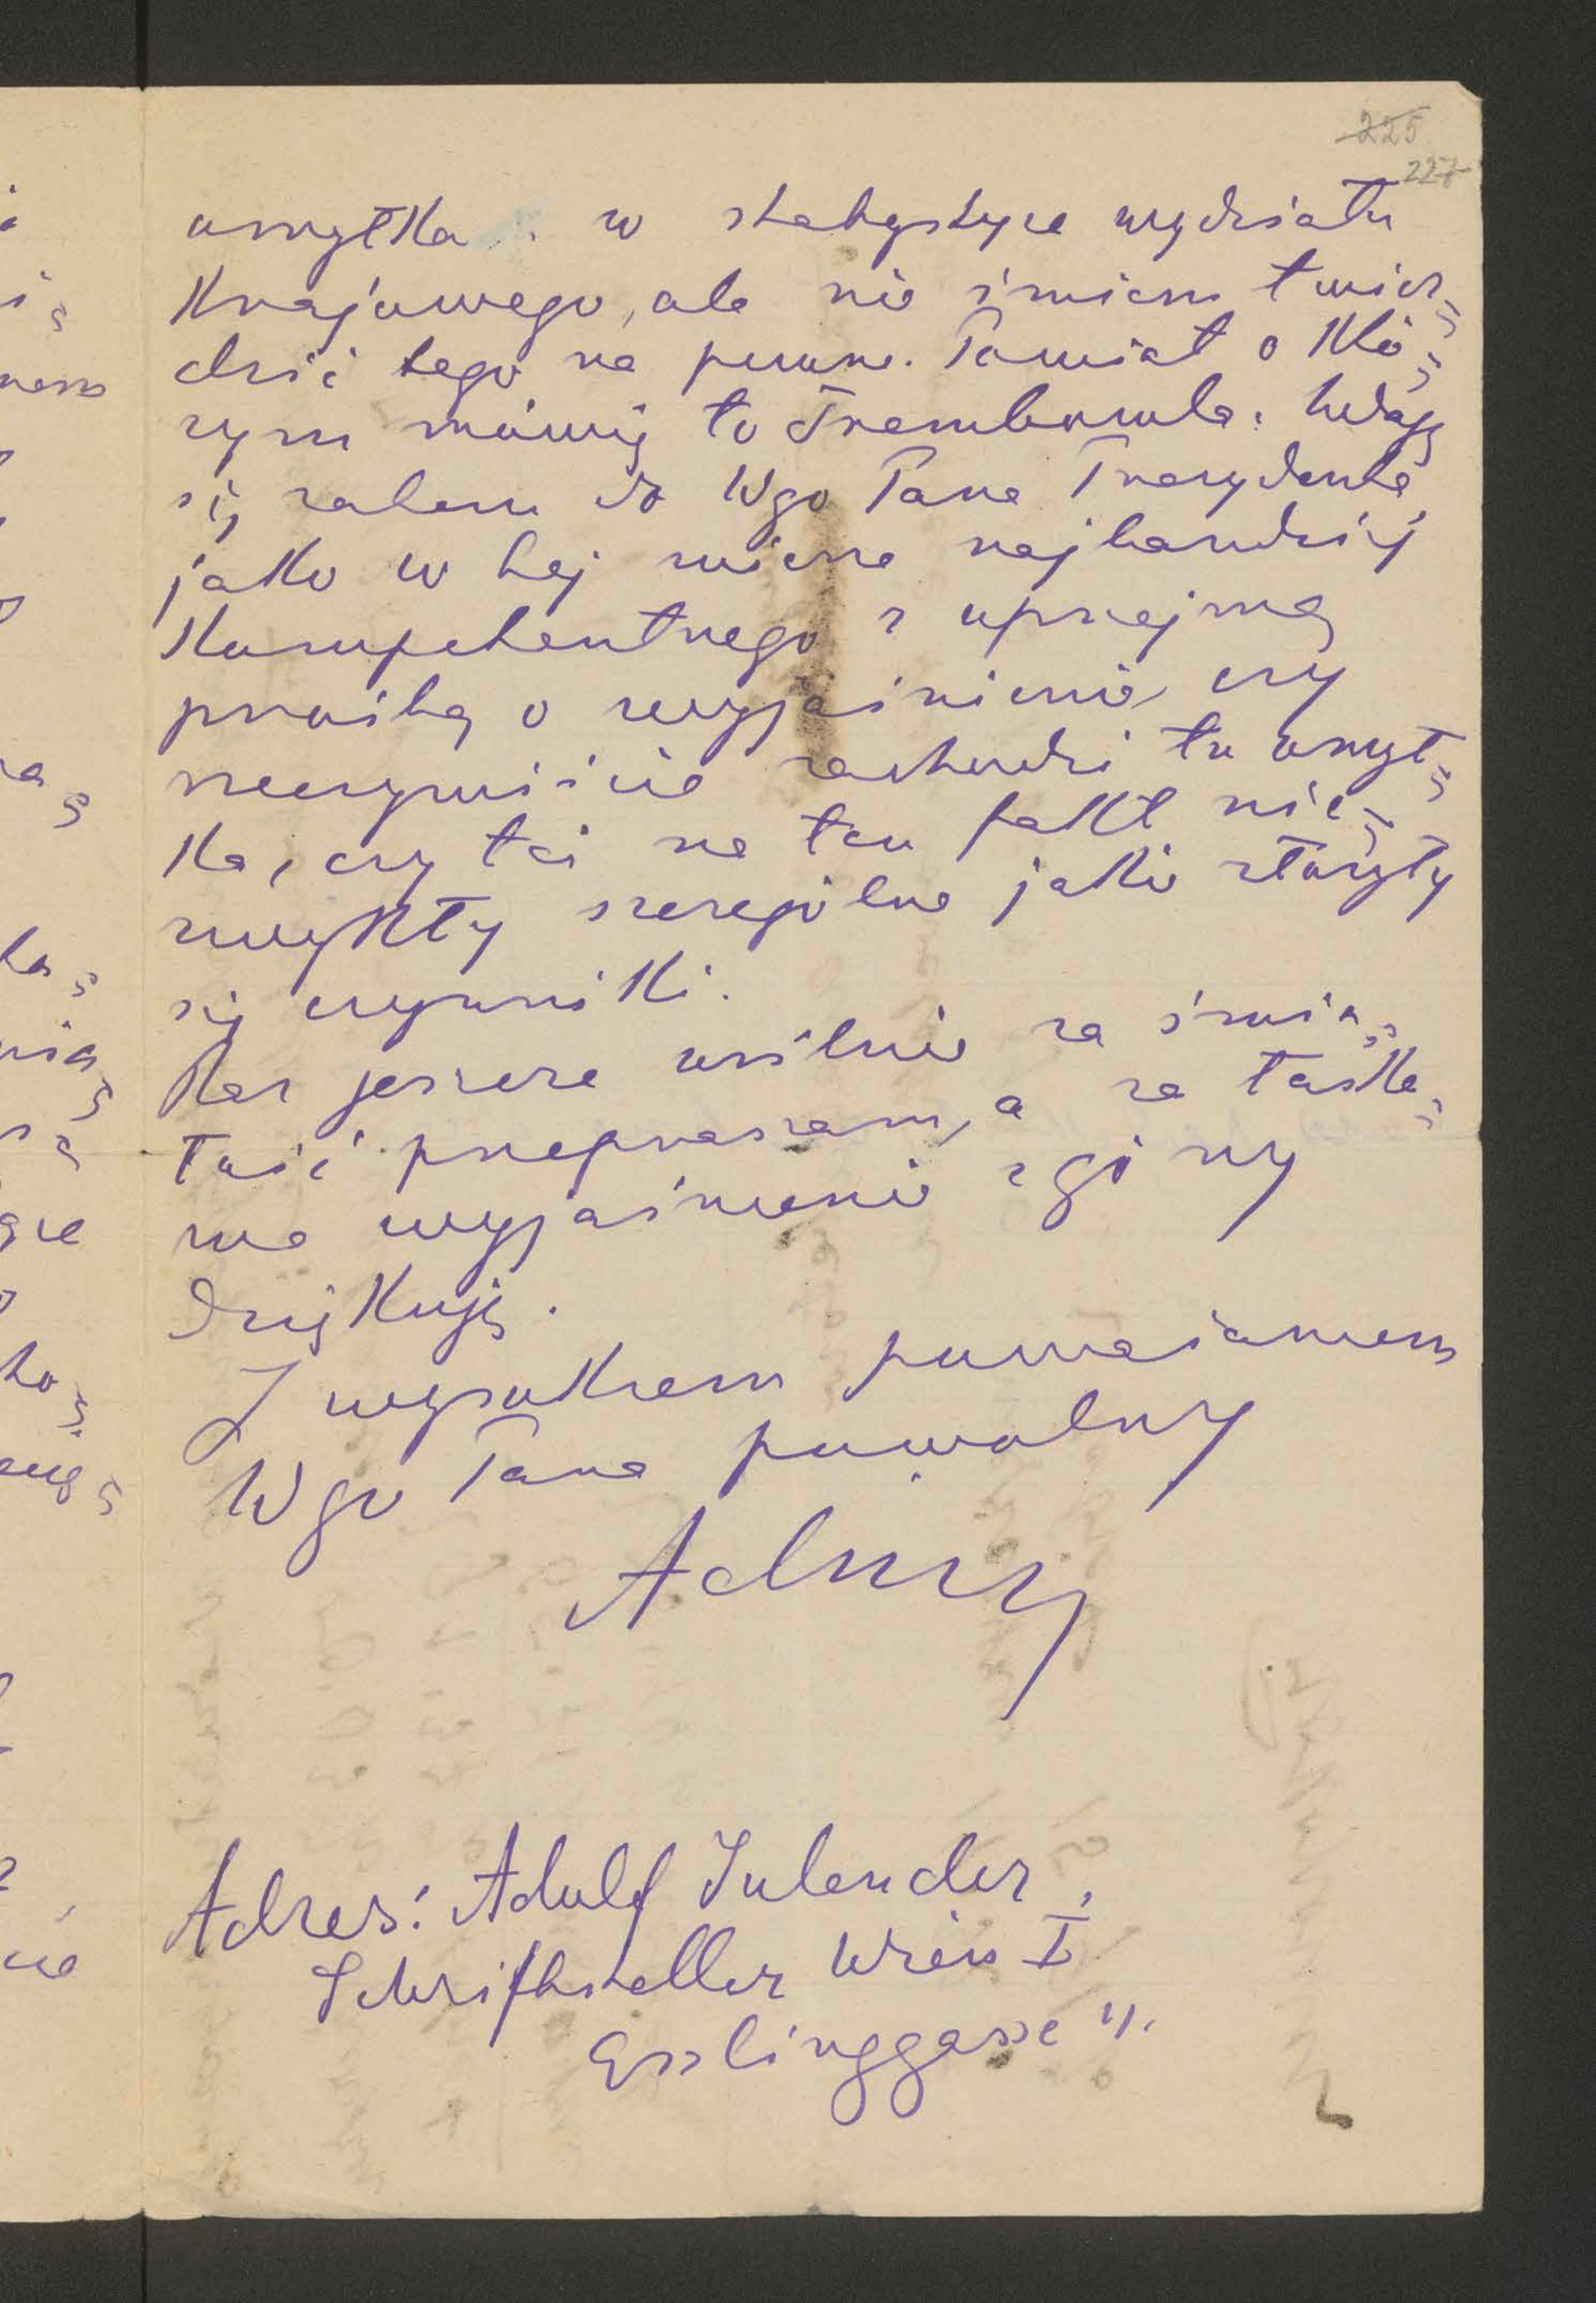 225
227
omyłka w statystyce wydziału
Krajowego, ale nie śmiem twier=
dzić tego na pewne. Powiat o któ=
rym mówię to Trembowla. Udaję
się zatem do Wgo Pana Prezydenta,
jako w tej mierze najbardziej
Kompetentnego z uprzejmą
prośbą o wyjaśnienie, czy
rzeczywiście zachodzi tu omył=
ka, czy też na ten fakt nie=
zwykły szczególne jakie złożyły
się czynniki.
Raz jeszcze usilnie za śmia=
łość przepraszam, a za łaska=
we wyjaśnienie z góry
dziękuję.
Z wysokiem poważaniem
Wgo Pana powolny
Adres: Adolf Inlender,
Schriftsteller Wien I
Esslinggasse 11.